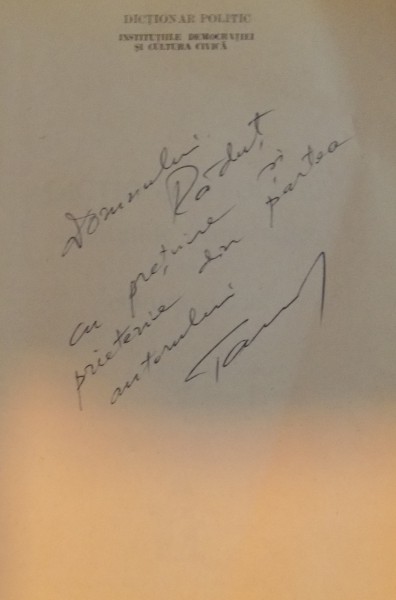 DICȚIONAR POLITIC
INSTITUȚIILE DEMOCRAȚIEI
ȘI CULTURA CIVICĂ
Domnului
Răduț
cu prețuire și
prietenie din partea
autorului